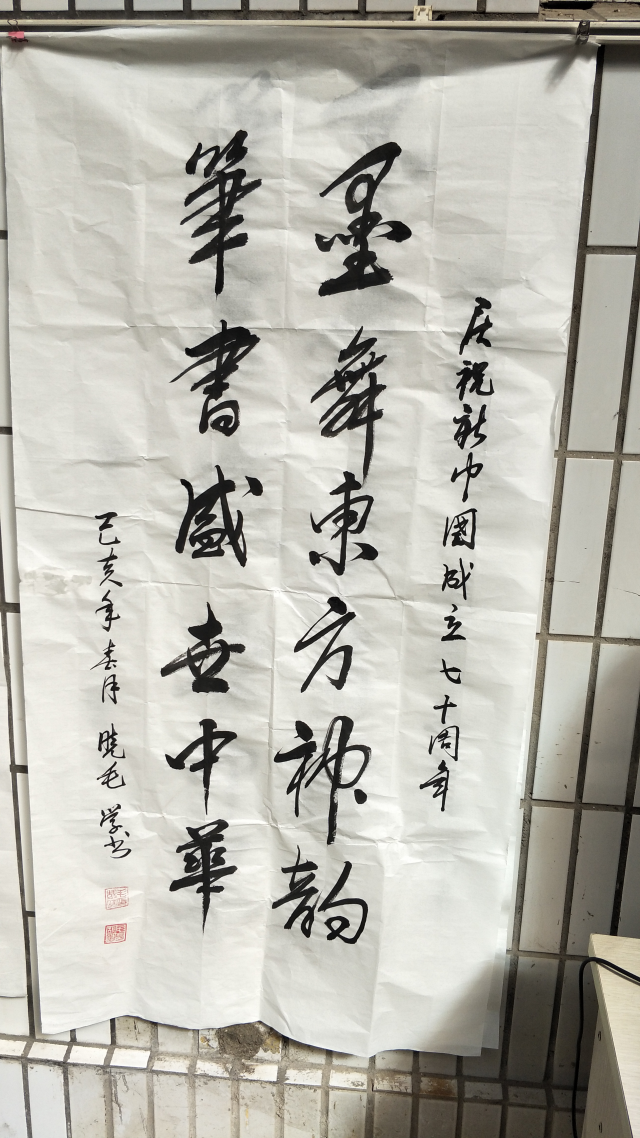 庆祝新中国成立七十周年
墨舞東方神韵
筆書盛世中華
己亥年春月 晓毛 学书